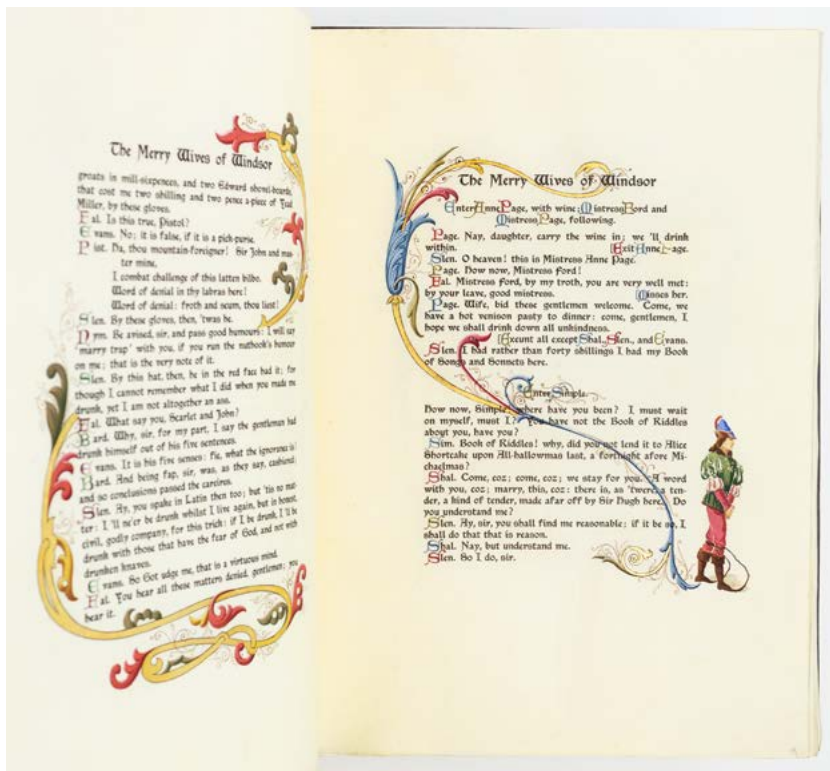 The Merry Wives of Windsor
groats in mill-sixpences, and two Edward shovel-boards,
that cost me two shilling and two pence a-piece of Yead
Miller, by these gloves.
Fal. Is this true, Pistol?
Evans. No; it is false, if it is a pick-purse.
Pist. Ha, thou mountain-foreigner! Sir John and mas-
ter mine,
I combat challenge of this latten bilbo.
Word of denial in thy labras here!
Word of denial: froth and scum, thou liest!
Slen. By these gloves, then, 'twas he.
Nym. Be avised, sir, and pass good humours: I will say
'marry trap' with you, if you run the nuthook's humour
on me; that is the very note of it.
Slen. By this hat, then, he in the red face had it; for
though I cannot remember what I did when you made me
drunk, yet I am not altogether an ass.
Fal. What say you, Scarlet and John?
Bard. Why, sir, for my part, I say the gentleman had
drunk himself out of his five sentences.
Evans. It is his five senses: fie, what the ignorance is!
Bard. And being fap, sir, was, as they say, cashiered;
and so conclusions passed the careires.
Slen. Ay, you spake in Latin then too; but 'tis no mat-
ter: I'll ne'er be drunk whilst I live again, but in honest,
civil, godly company, for this trick: if I be drunk, I'll be
drunk with those that have the fear of God, and not with
drunken knaves.
Evans. So Got udge me, that is a virtuous mind.
Fal. You hear all these matters denied, gentlemen; you
hear it.
The Merry Wives of Windsor
Enter Anne Page, with wine; Mistress Ford and
Mistress Page, following.
Page. Nay, daughter, carry the wine in; we'll drink
within. [Exit Anne Page.
Slen. O heaven! this is Mistress Anne Page.
Page. How now, Mistress Ford!
Fal. Mistress Ford, by my troth, you are very well met:
by your leave, good mistress. [Kisses her.
Page. Wife, bid these gentlemen welcome. Come, we
have a hot venison pasty to dinner: come, gentlemen, I
hope we shall drink down all unkindness.
[Exeunt all except Shal., Slen., and Evans.
Slen. I had rather than forty shillings I had my Book
of Songs and Sonnets here.
Enter Simple.
How now, Simple, where have you been? I must wait
on myself, must I? You have not the Book of Riddles
about you, have you?
Sim. Book of Riddles! why, did you not lend it to Alice
Shortcake upon All-hallowmas last, a fortnight afore Mi-
chaelmas?
Shal. Come, coz; come, coz; we stay for you. A word
with you, coz; marry, this, coz: there is, as 'twere, a ten-
der, a kind of tender, made afar off by Sir Hugh here. Do
you understand me?
Slen. Ay, sir, you shall find me reasonable; if it be so, I
shall do that that is reason.
Shal. Nay, but understand me.
Slen. So I do, sir.